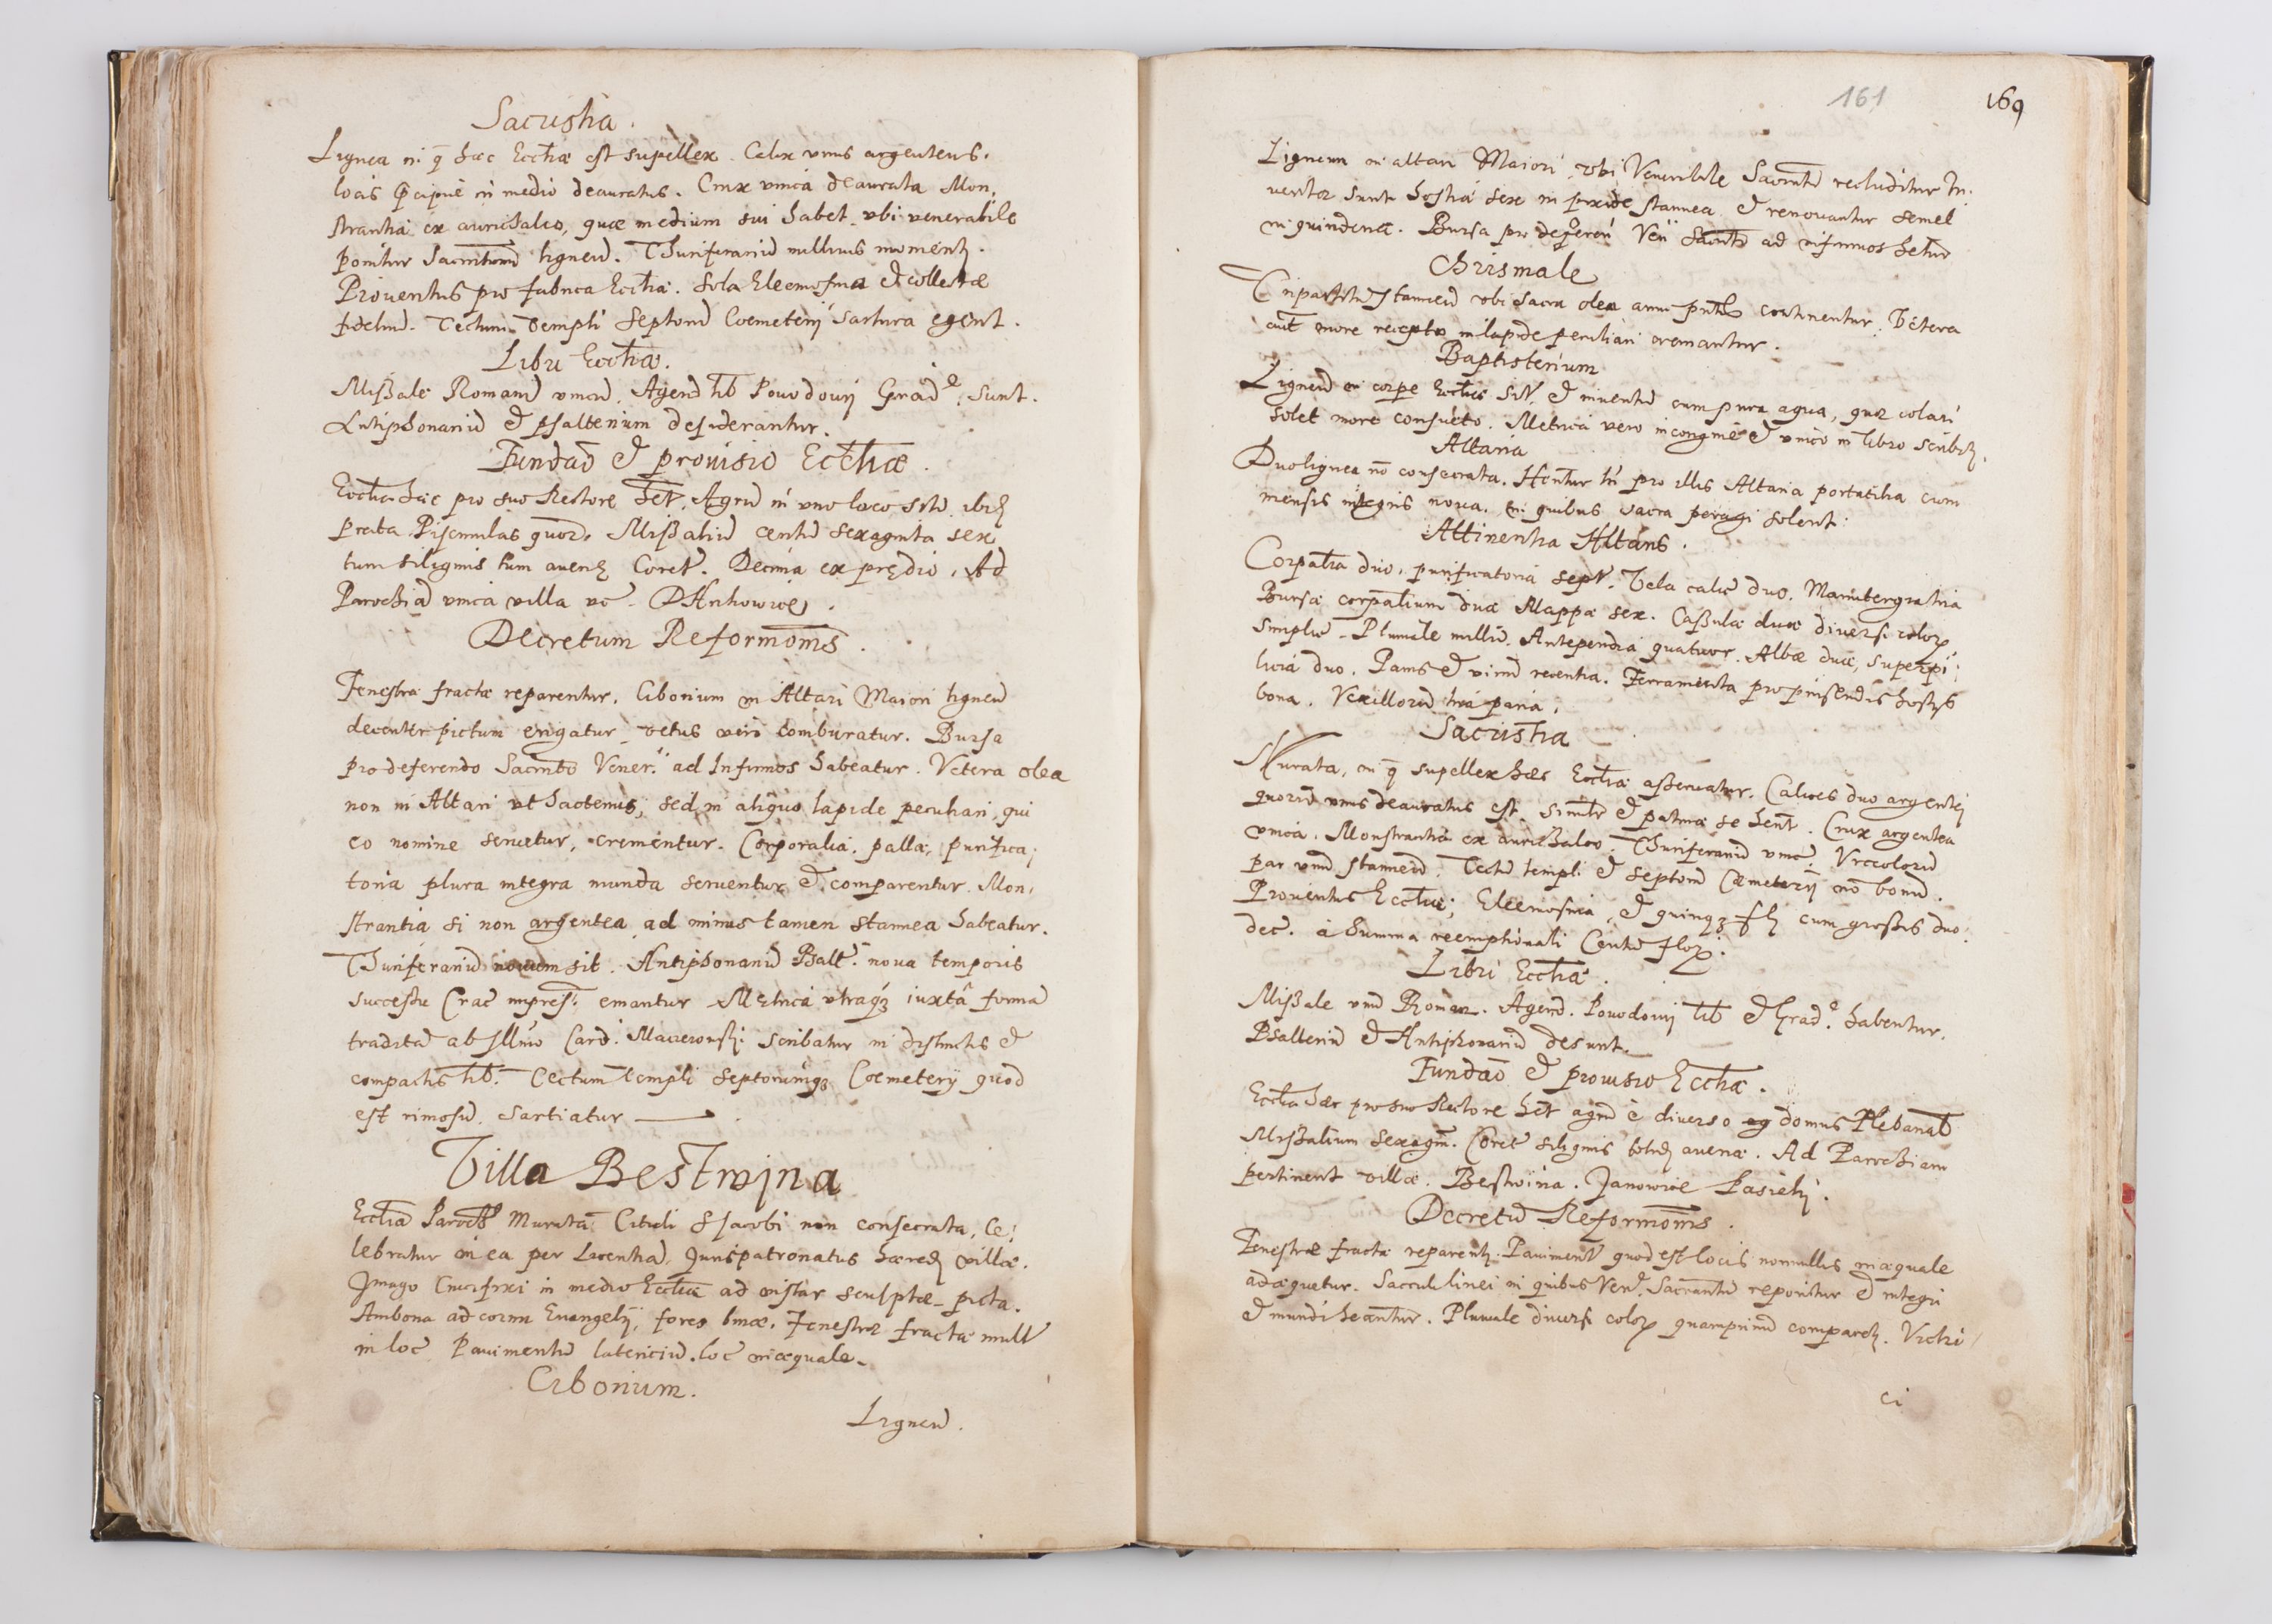 Sacristia.
Lignea in q̄ haec Eccl̄ia est supellex. Calix vnus argenteus.
locis p̄cipuè in medio deauratus. Crux vnica deaurata Mon,
strantia ex aurichalco, quae medium sui habet vbi venerabile
ponitur Sacramentū ligneū. Thuriferariū nullius momentj.
Prouentus pro fabrica Eccl̄iae. Sola Eleemosina et collectae
fideliū. Tectum Templi Septorū Coemeterij sartura egent.
Libri Eccl̄iae.
Missale Romanū vnicū. Agend lib Powodowij Grad. sunt.
Antiphonariū et psalterium desiderantur.
Fundaō et prouisio Eccl̄iae.
Eccl̄ia haec pro suo Rectore het. Agrū in vno loco sitū ibiq
prata Piscinulas quoq. Missaliū centū sexaginta sex
tum siliginis tum auenę Coret. Decima ex prędio. Ad
Parochiā vnica villa vc. Dankowice.
Decretum Reformōnis.
Fenestrae fractae reparentur. Ciborium in Altari Maiori ligneū
decenter pictum erigatur, vetus verò comburatur. Bursa
pro deferendo Sacrnto Vener. ad Infirmos habeatur. Vetera olea
non in Altari vt hactenus, sed in aliquo lapide peculiari, qui
eo nomine seruetur, crementur. Corporalia, pallae, purifica,
toria plura integra munda seruentur et comparentur. Mon,
strantia si non argentea ad minus tamen stannea habeatur.
Thuriferariū nouum sit. Antiphonariū Psalt. nova temporis
successu Crac impress. emantur Metrica vtraq3 iuxtâ formā
traditā ab Illmo Card. Macieiowski scribatur in distinctis et
compactis lib. Tectum templi septorumq3 Coemeterij quod
est rimosū, sartiatur
Villa Bestwina
Eccl̄ia Paroch Murata Tituli S Jacobi non consecrata, Ce,
lebratur in ea per Licentiā. Jurispatronatus haered villae.
Imago Crucifixi in medio Eccl̄iae ad instar sculptae picta.
Ambona ad cornu Euangelij, fores binae. Fenestrae fractae mult
in loc Pauimentū lateritiū loc inaequale.
Ciborium.
Ligneū.
161
169
Ligneum in altari Maiori, vbi Venerabile Sacrmtū recluditur In,
uentae sunt hostiae sex in pixide stannea et renouantur semel
in quindena. Bursa pro deferen Ven Sacrto ad infirmos hetur
Chrismale
Tripartitū stanneū vbi sacra olea anni prntis continentur. Vetera
aut more recepto in lapide peculiari cremantur.
Baptisterium
Ligneū in corpe Eccl̄iae sit. et inuentū cum pura aqua, quae colari
solet more consueto. Metrica vero incongruè et vnico in libro scribit.
Altaria
Duo lignea nō consecrata. Hentur tn pro illis Altaria portatilia cum
mensis integris noua. in quibus sacra peragi solent.
Attinentia Altaris.
Corpalia duo, purificatoria sept. Vela calic duo. Manutergia tria
Bursae corpalium duae Mappae sex. Cassulae duae diuersi color
simplic. Pluuiale nullū. Antependia quatuor. Albae duae, superpi,
licia duo. Panis et vinū recentia. Ferramenta pro pinsendis hostijs
bona. Vexillorū tria paria.
Sacristia
Murata, in q̄ supellex haec Eccl̄iae asseruatur. Calices duo argentej
quorū vnus deauratus est. simlr et patinae se hent. Crux argentea
vnica. Monstrantia ex aurichalco. Thuriferariū vnic. Vrceolorū
par vnū stanneū. Tectū templi et septorū Caemeterij nō bonū.
Prouentus Eccl̄iae; Eleemosina, et quinq3 fl cum grossis duo,
dec. à Summa reemptionali Centū flor.
Libri Eccl̄iae.
Missale vnū Roman. Agend. Powodowij lib et Grad. habentur.
Psalteriū et Antiphonariū desunt.
Fundaō et prouisio Eccl̄iae.
Eccl̄ia haec pro suo Rectore het agrū è diverso domus Plebanal
Missalium sexagin. Coret siliginis totid auenae. Ad Parochiam
pertinent villae. Bestwina. Janowice Pasieki.
Decretū Reformōnis.
Fenestrae fractae reparent. Pauiment quod est locis nonnullis inaequale
adaequetur. Sacculi linei in quibus Ven. Sacramtū reponitur et integri
et mundi heantur. Pluuiale diuersi color quamprimū comparet. Victri
ci